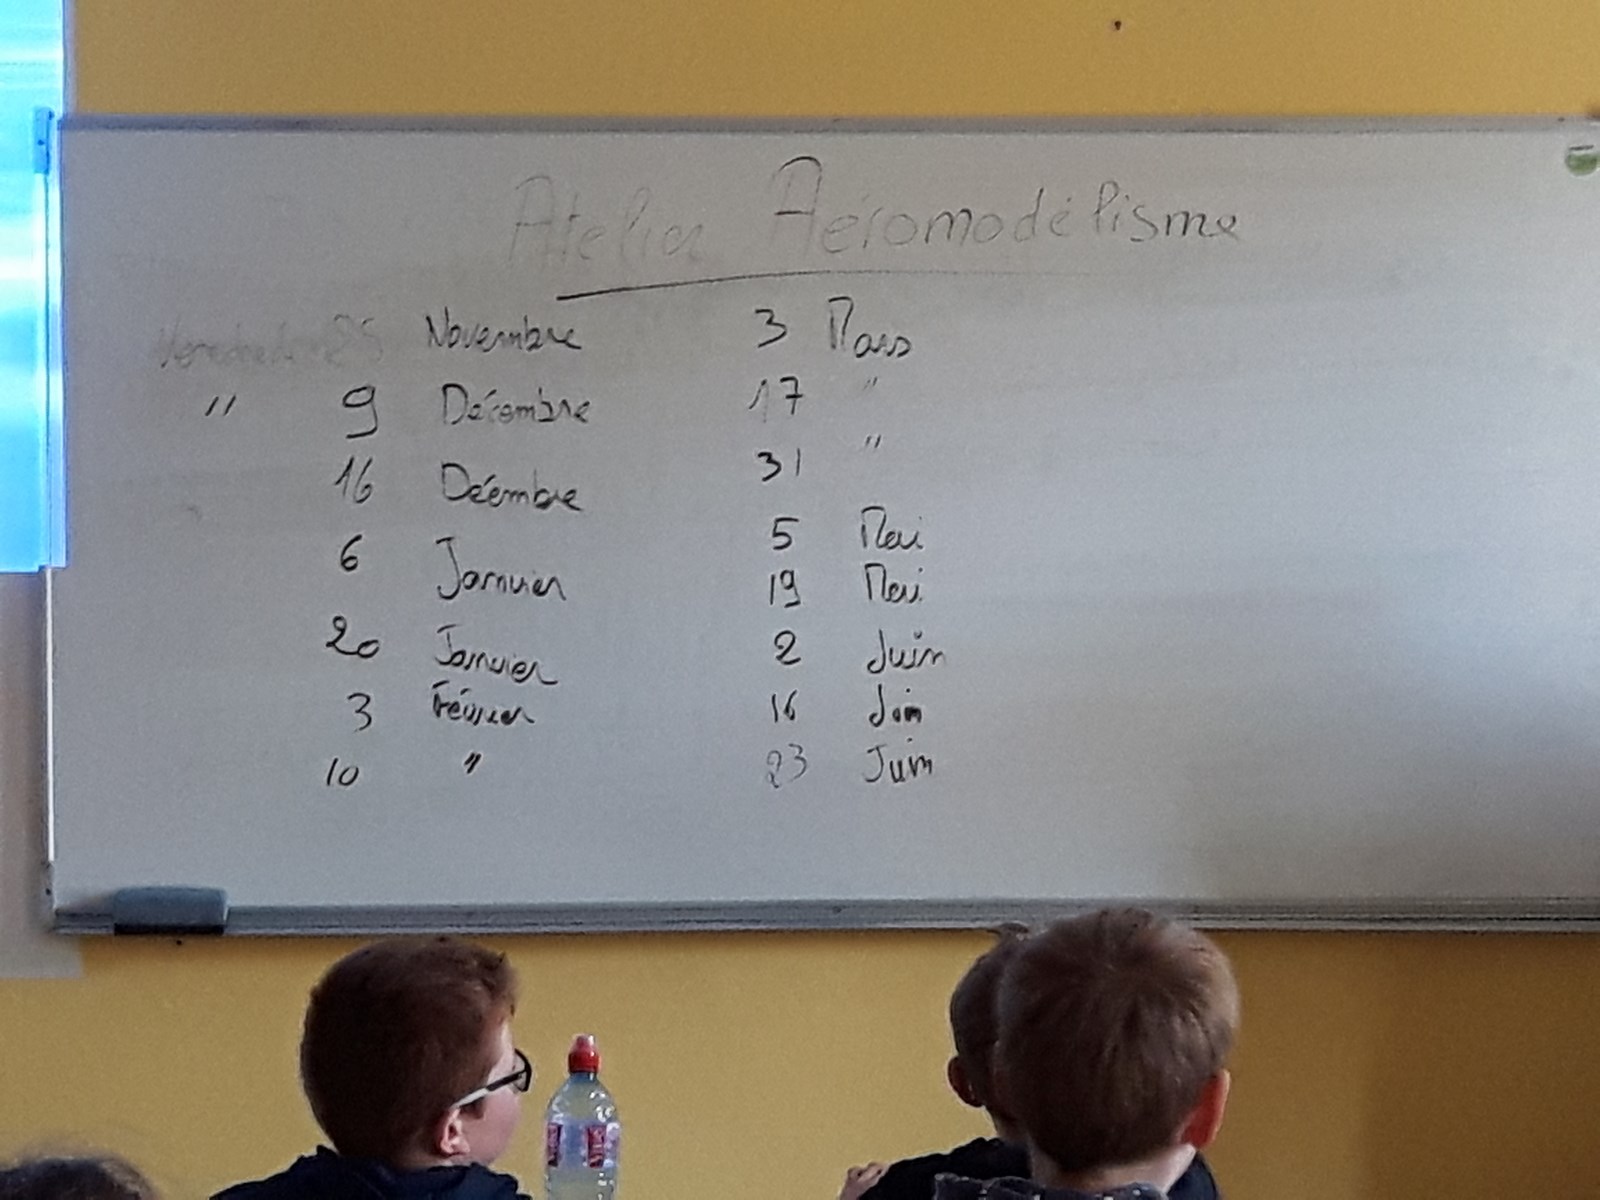 Atelier Aéromodélisme
Vendredi 25 Novembre
" 9 Décembre
16 Déembre
6 Janvier
20 Janvier
3 Février
10 "
3 Mars
17 "
31 "
5 Mai
19 Mai
2 Juin
16 Juin
23 Juin